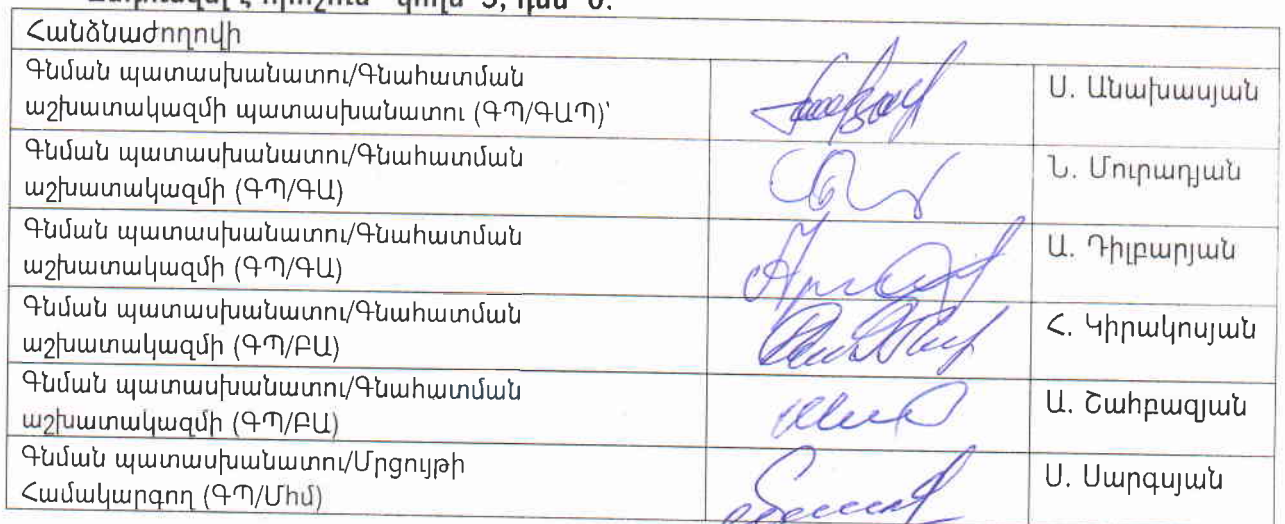 է որոշում կողմ 5, դեմ 0.
Հանձնաժողովի
Գնման պատասխանատու/Գնահատման
աշխատակազմի պատասխանատու (ԳՊ/ԳԱՊ)՝
Ս. Անախասյան
Գնման պատասխանատու/Գնահատման
աշխատակազմի (ԳՊ/ԳԱ)
Ն. Մուրադյան
Գնման պատասխանատու/Գնահատման
աշխատակազմի (ԳՊ/ԳԱ)
Ա. Դիլբարյան
Գնման պատասխանատու/Գնահատման
աշխատակազմի (ԳՊ/ԲԱ)
Հ. Կիրակոսյան
Գնման պատասխանատու/Գնահատման
աշխատակազմի (ԳՊ/ԲԱ)
Ա. Շահբազյան
Գնման պատասխանատու/Մրցույթի
Համակարգող (ԳՊ/Միմ)
Ս. Սարգսյան